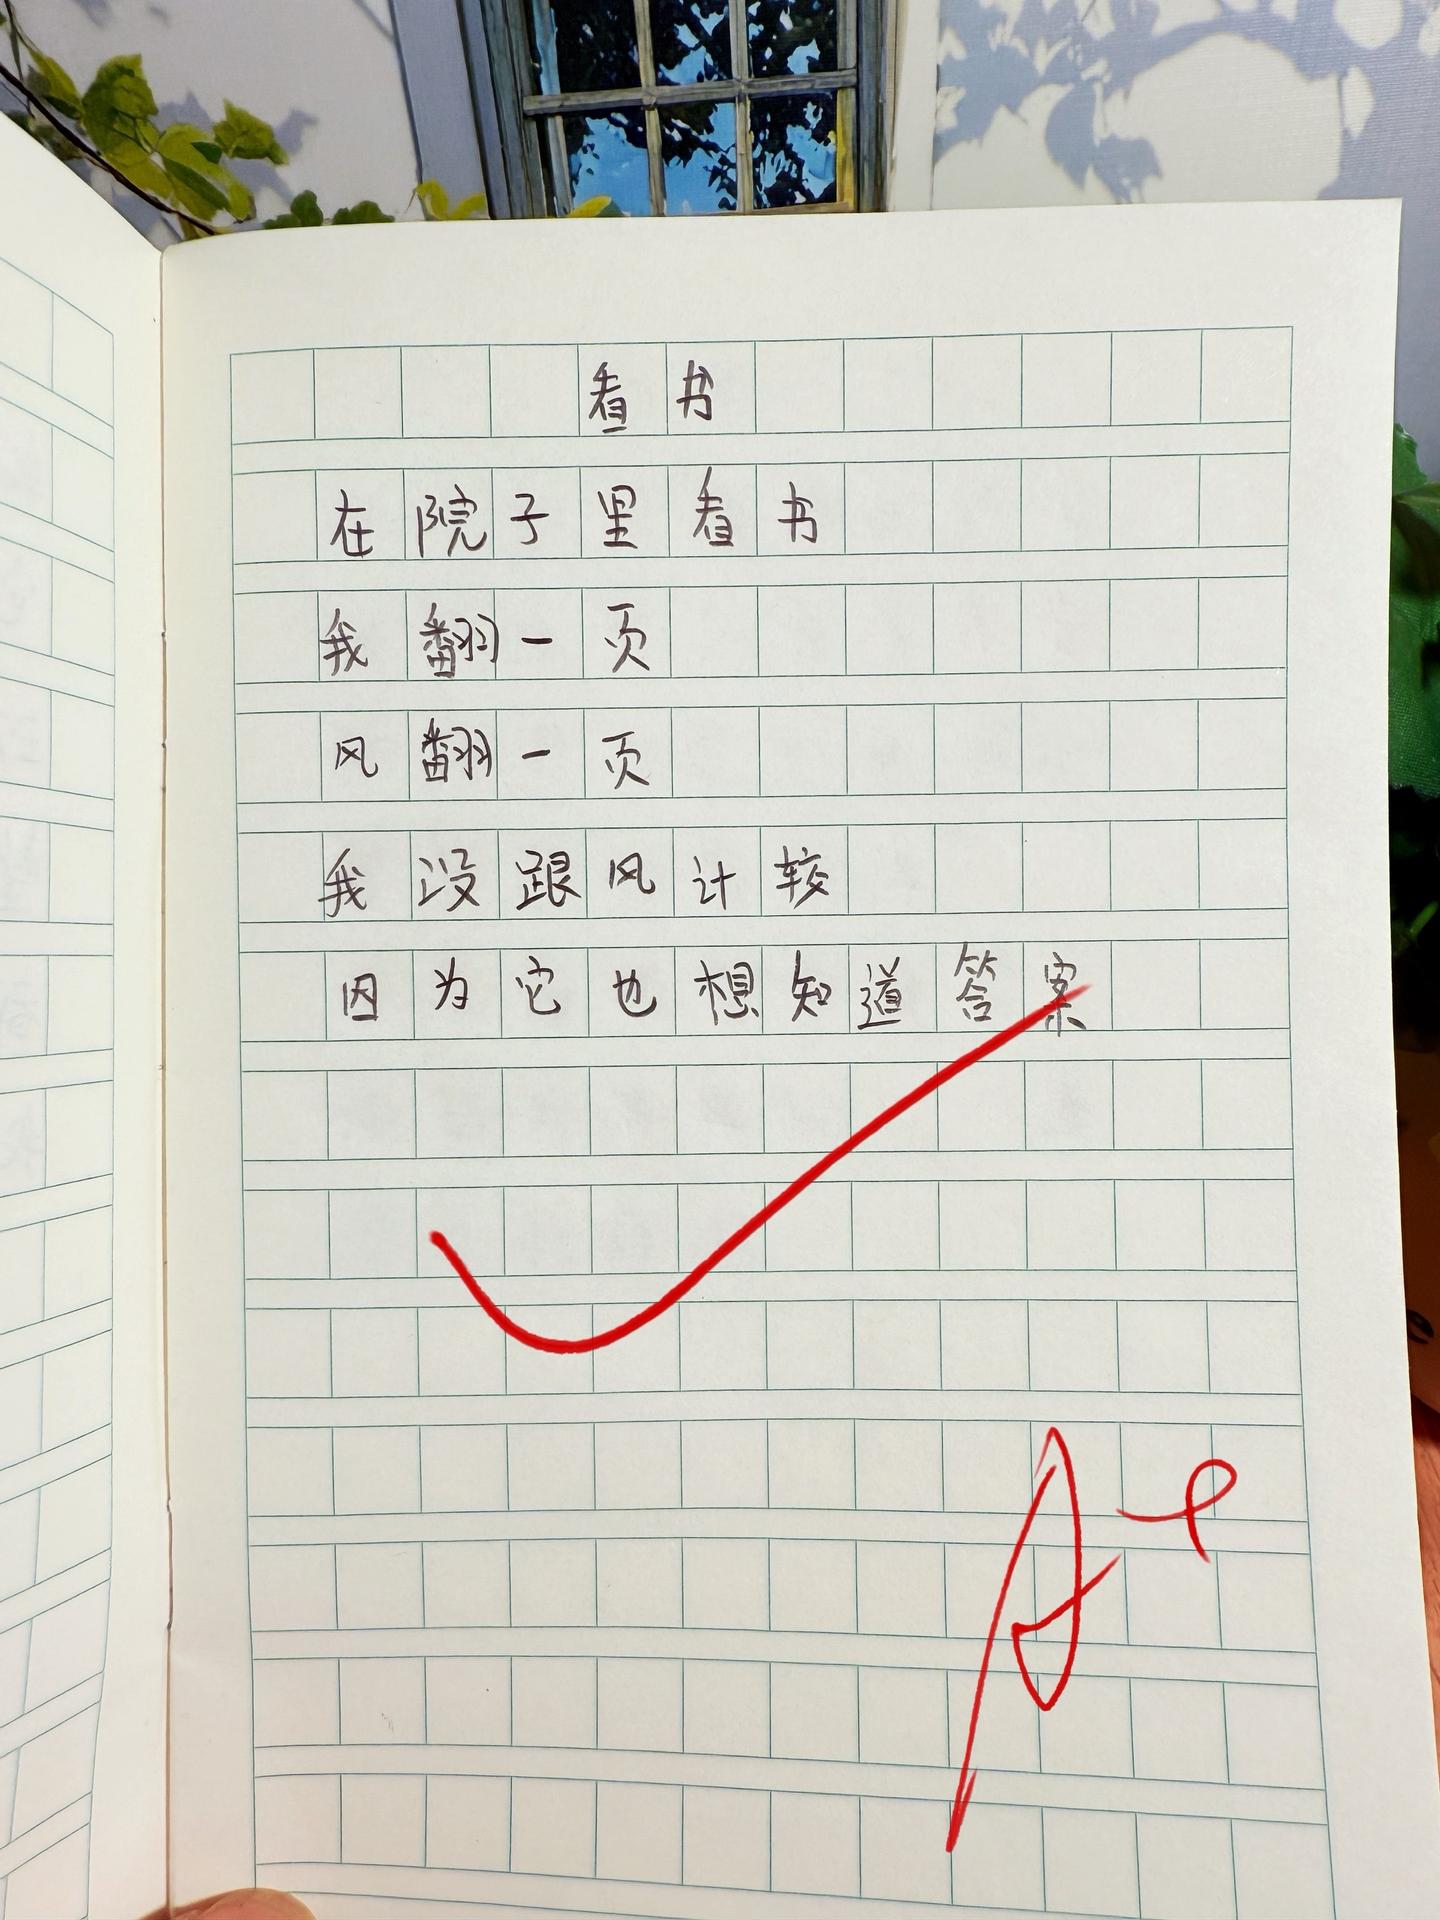 看书
在院子里看书
我翻一页
风翻一页
我没跟风计较
因为它也想知道答案
A+